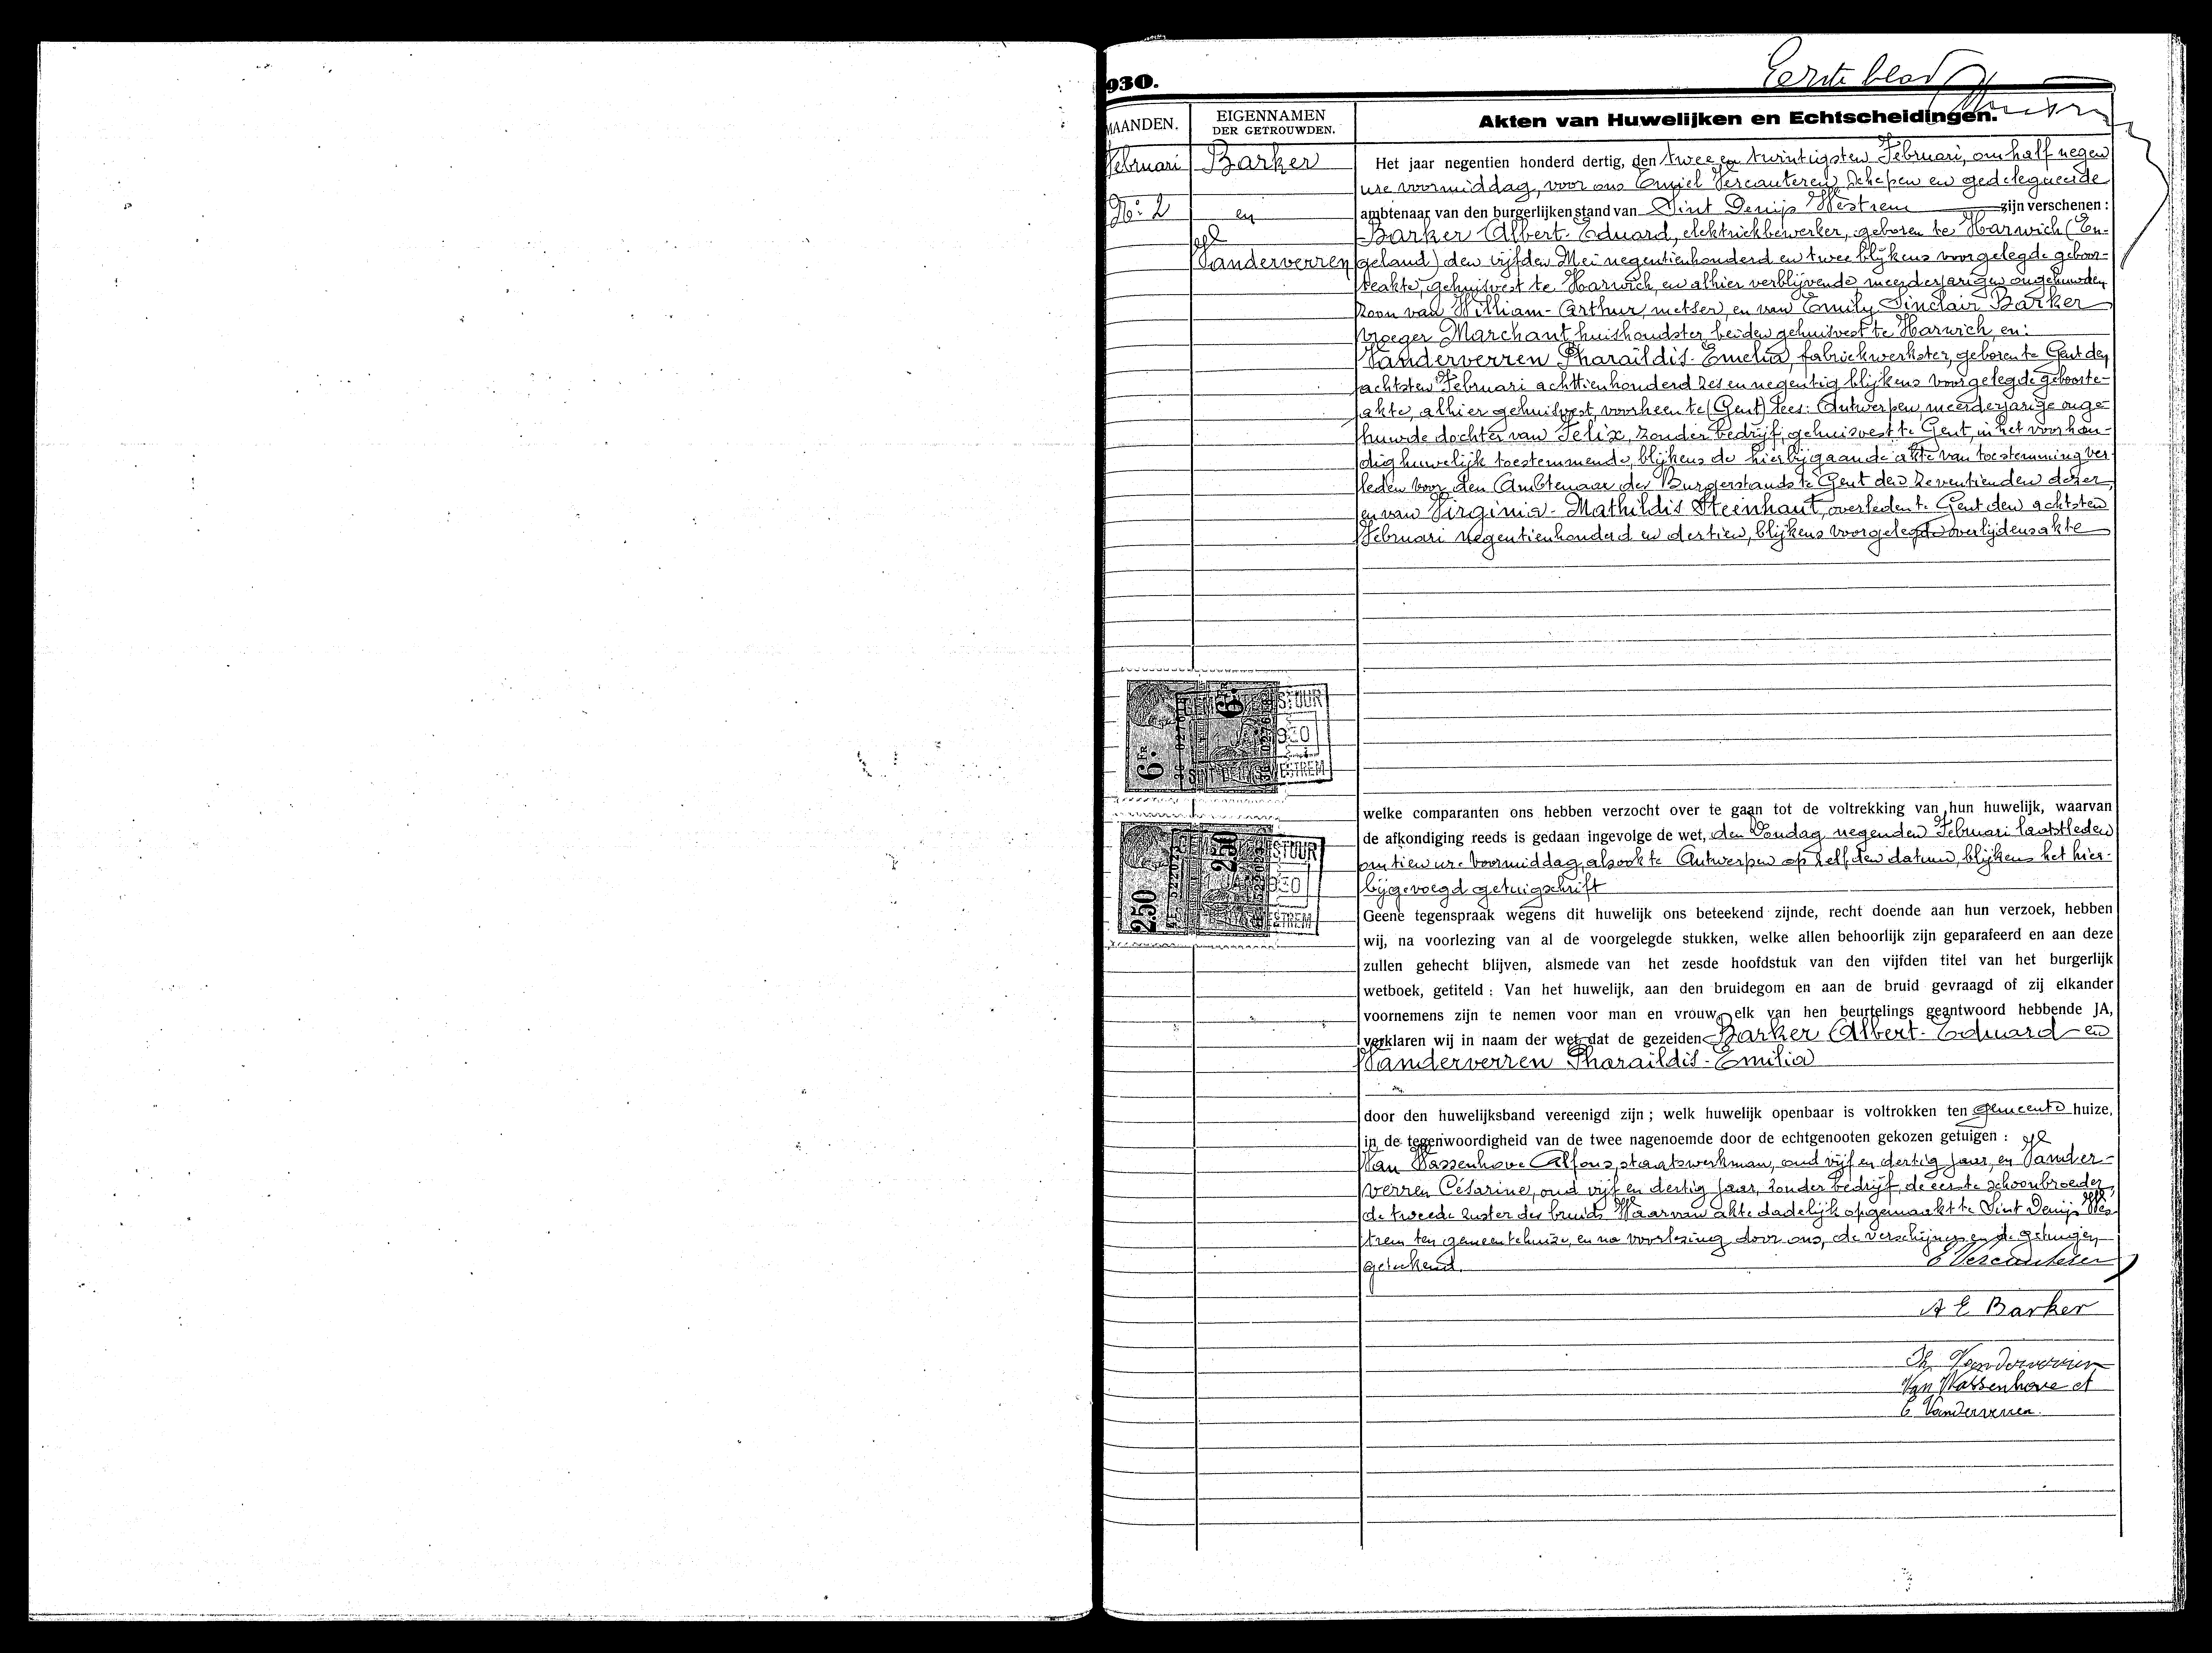 930.
Eerste blad
MAANDEN.
EIGENNAMEN
DER GETROUWDEN.
Akten van Huwelijken en Echtscheidingen.
Februari
Barker
Nr. 2
en
Vanderverren
Het jaar negentien honderd dertig, den twee en twintigsten Februari, om half negen
ure voormiddag, voor ons Emiel Vercauteren, Schepen en gedelegueerde
ambtenaar van den burgerlijken stand van Sint Denijs Westrem zijn verschenen :
Barker Albert-Eduard, elektriekbewerker, geboren te Harwich (En-
geland) den vijfden Mei negentienhonderd en twee blijkens voorgelegde geboor-
teakte, gehuisvest te Harwich, en alhier verblijvende, meerderjarigen ongehuwden
zoon van William-Arthur, metser, en van Emily Sinclair Barker
vroeger Marchant huishoudster, beiden gehuisvest te Harwich, en:
Vanderverren Pharaïldis-Emelia, fabriekwerkster, geboren te Gent den
achtsten Februari achttienhonderd zes en negentig blijkens voorgelegde geboorte-
akte, alhier gehuisvest, voorheen te (Gent) lees: Antwerpen, meerderjarige onge-
huwde dochter van Felix, zonder bedrijf, gehuisvest te Gent, in het voorhan-
dig huwelijk toestemmende, blijkens de hierbijgaande akte van toestemming ver-
leden voor den Ambtenaar des Burgerstands te Gent den zeventienden dezer,
en van Virginia-Mathildis Steenhaut, overleden te Gent den achtsten
Februari negentienhonderd en dertien, blijkens voorgelegde overlijdensakte
6 FR
6 FR
1 JAN 1930
SINT DENIJS WESTREM
welke comparanten ons hebben verzocht over te gaan tot de voltrekking van hun huwelijk, waarvan
de afkondiging reeds is gedaan ingevolge de wet, den Zondag negenden Februari laatstleden
om tien ure voormiddag, alsook te Antwerpen op zelfden datum, blijkens het hier-
bijgevoegd getuigschrift
2.50
2.50
Geene tegenspraak wegens dit huwelijk ons beteekend zijnde, recht doende aan hun verzoek, hebben
wij, na voorlezing van al de voorgelegde stukken, welke allen behoorlijk zijn geparafeerd en aan deze
zullen gehecht blijven, alsmede van het zesde hoofdstuk van den vijfden titel van het burgerlijk
wetboek, getiteld : Van het huwelijk, aan den bruidegom en aan de bruid gevraagd of zij elkander
voornemens zijn te nemen voor man en vrouw, elk van hen beurtelings geantwoord hebbende JA,
verklaren wij in naam der wet dat de gezeiden Barker Albert-Eduard en
Vanderverren Pharaïldis-Emilia
door den huwelijksband vereenigd zijn ; welk huwelijk openbaar is voltrokken ten gemeente huize,
in de tegenwoordigheid van de twee nagenoemde door de echtgenooten gekozen getuigen :
Van Wassenhove Alfons, staatswerkman, oud vijf en dertig jaar, en Vander-
verren Césarine, oud vijf en dertig jaar, zonder bedrijf, de eerste schoonbroeder,
de tweede zuster der bruid. Waarvan akte dadelijk opgemaakt te Sint Denijs Wes-
trem ten gemeentehuize, en na voorlezing door ons, de verschijners en de getuigen
geteekend.
E Vercauteren
A E Barker
Ph Vanderverren
Van Wassenhove A
C Vanderverren.